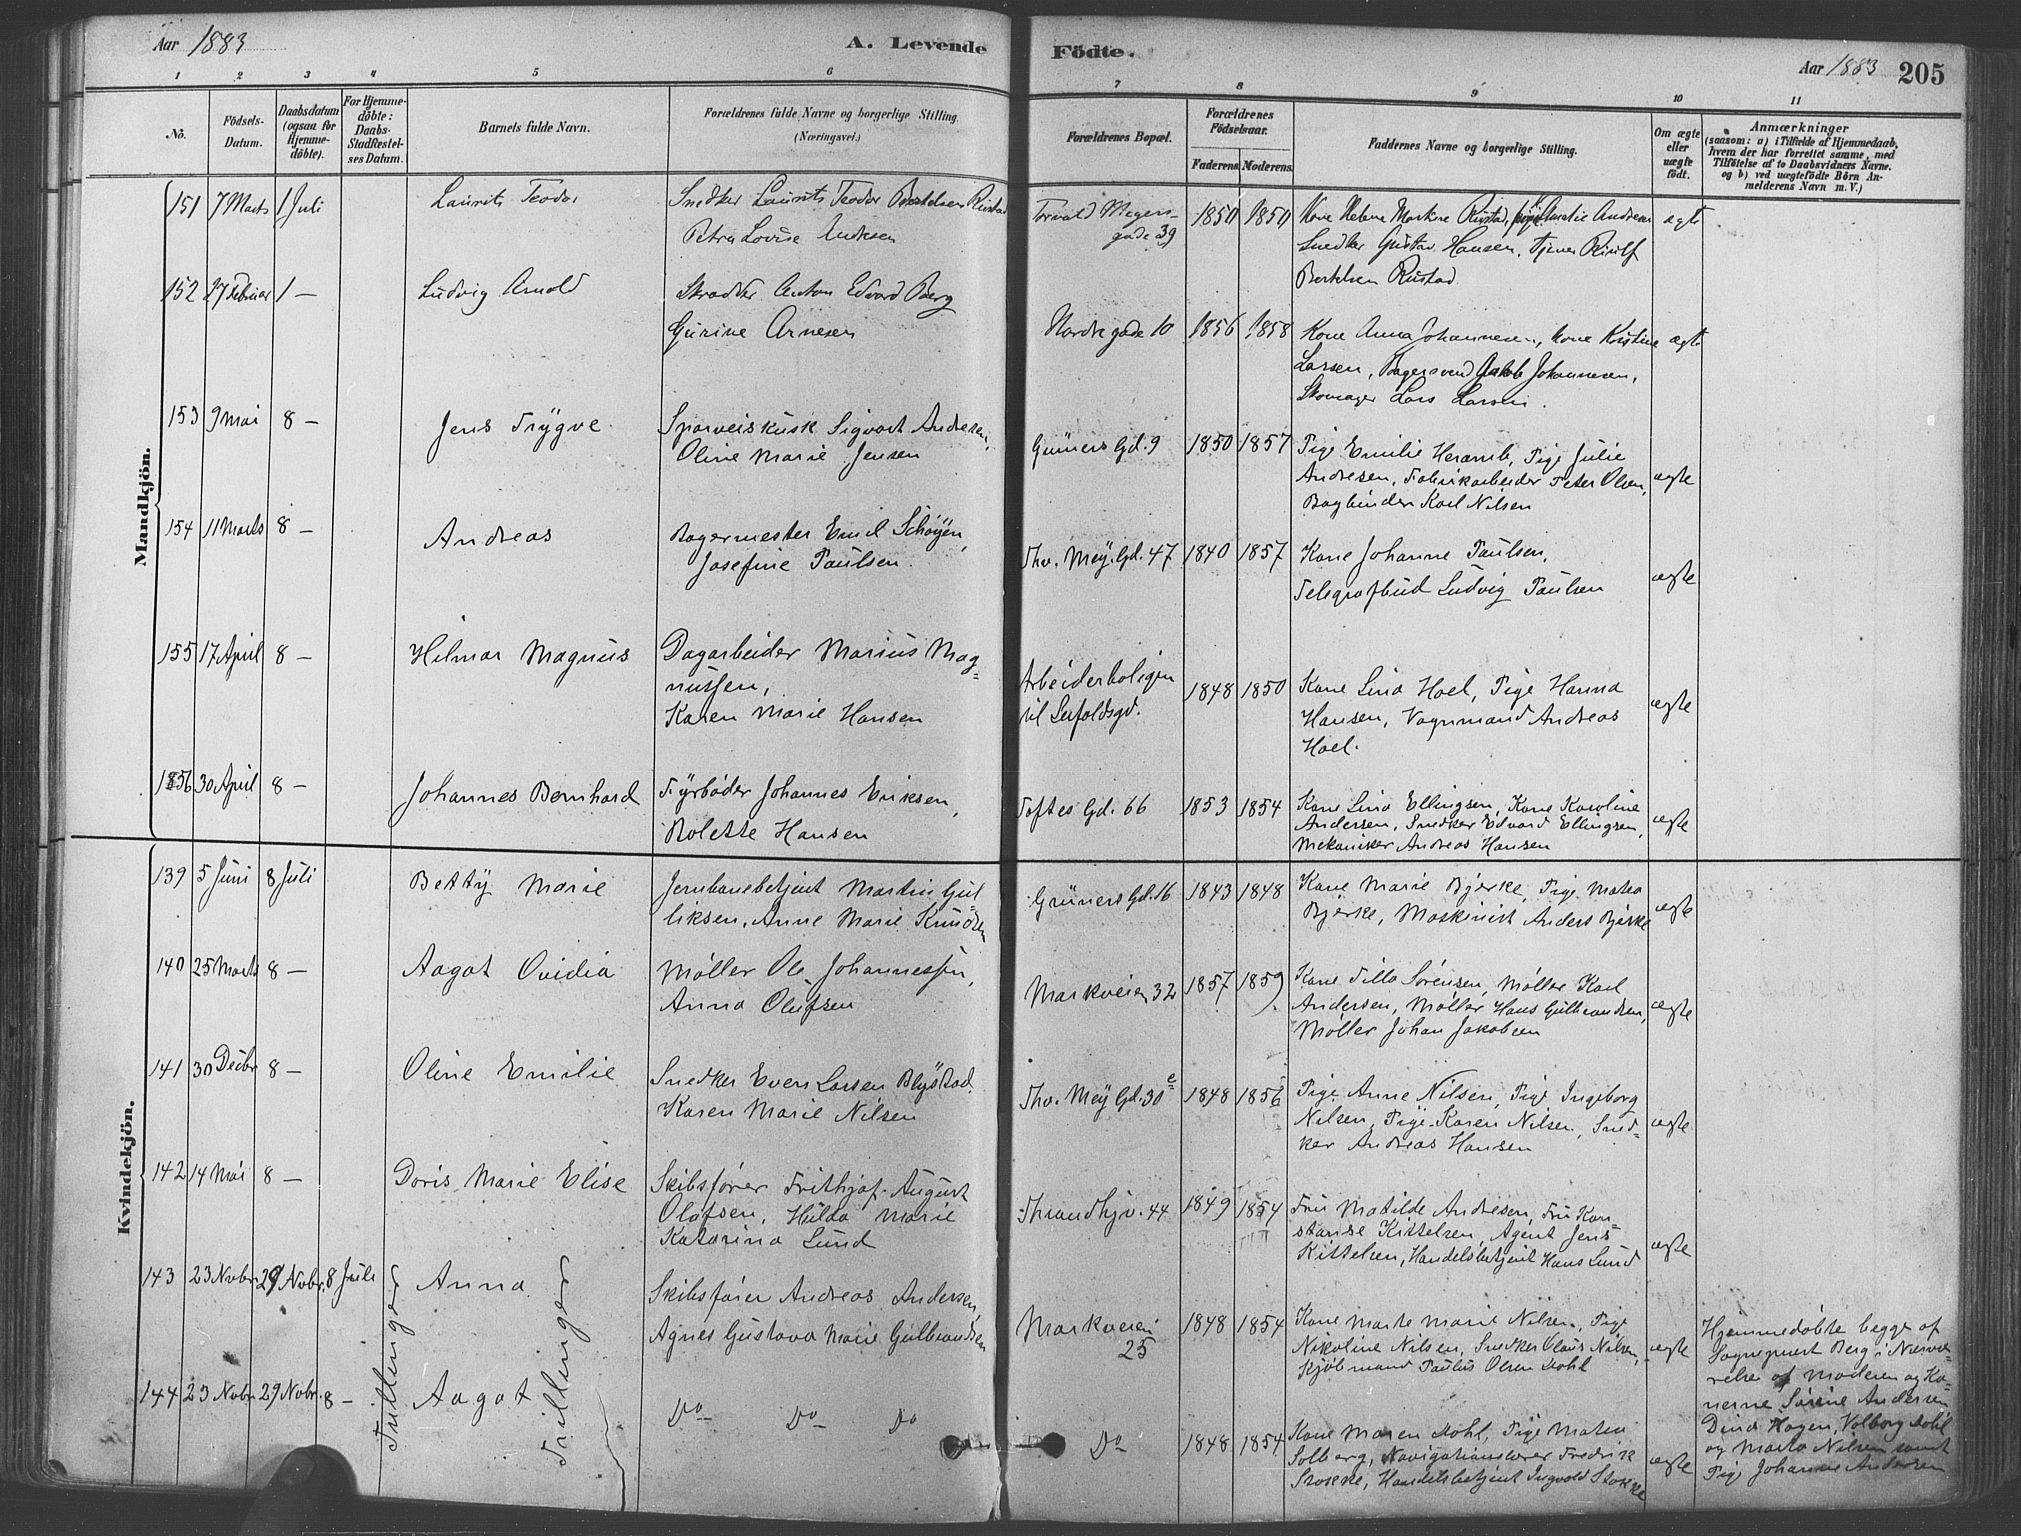 Aar 1883
A. Levende
Födte.
Aar 1883
205
1 2 3 4 5 6 7 8 9 10 11
No.
Födsels-
Datum.
Daabsdatum
(ogsaa for
Hjemme-
döbte).
For Hjemme-
döbte:
Daabs-
Stadfestel-
ses Datum.
Barnets fulde Navn.
Forældrenes fulde Navne og borgerlige Stilling.
(Næringsvei.)
Forældrenes Bopæl.
Forældrenes
Födselsaar.
Faderens. Moderens.
Faddernes Navne og borgerlige Stilling.
Om ægte
eller
uægte
födt.
Anmærkninger
(saasom: a) i Tilfælde af Hjemmedaab,
hvem der har forrettet samme, med
Tilföielse af to Daabsvidners Navne.
og b) ved uægtefödte Börn An-
melderens Navn m. V.)
Mandkjön.
151 7 Marts 1 Juli Laurits Teodor
Snedker Laurits Teodor Bertelsen Rustad
Petra Lovise Andresen
Torvald Meyers-
gade 39
1850 1850
Kone Helene Martine Rustad, Pige Amalie Andresen
Snedker Gustav Hansen, Tjener Rudolf
Bertelsen Rustad.
ægte
152 27 Februar 1 — Ludvig Arnold
Skrædder Anton Edvard Berg
Gurine Arnesen
Nordregade 10
1856 1858
Kone Anna Johannesen, Kone Kristine
Larsen, Bagersvend Jakob Johannesen,
Skomager Lars Larsen.
ægte
153 9 Mai 8 — Jens Trygve
Sporveiskusk Sigvart Andresen,
Oline Marie Jensen
Grüners Gd. 9
1850 1857
Pige Emilie Heramb, Pige Julie
Andresen, Fabrikarbeider Peter Olsen,
Bogbinder Karl Nilsen
ægte
154 11 Marts 8 — Andreas
Bagermester Emil Schøyen,
Josefine Paulsen.
Thv. Mey. Gd. 47
1840 1857
Kone Johanne Paulsen,
Telegrafbud Ludvig Paulsen
ægte
155 17 April 8 — Hilmar Magnus
Dagarbeider Marius Mag-
nussen,
Karen Marie Hansen
Arbeiderboligen
til Seifoldsgd.
1848 1850
Kone Lina Hoel, Pige Hanna
Hansen, Vognmand Andreas
Hoel.
ægte
156 30 April 8 — Johannes Bernhard
Fyrbøder Johannes Eriksen,
Bolette Hansen
Toftes Gd. 66
1853 1854
Kone Lina Ellingsen, Kone Karoline
Andersen, Snedker Edvard Ellingsen,
Mekaniker Andreas Hansen
ægte
Kvindekjön.
139 5 Juni 8 Juli Betty Marie
Jernbanebetjent Martin Gul-
liksen, Anne Marie Knudsen
Grüners Gd. 16
1843 1848
Kone Marie Bjerke, Pige Mathea
Bjerke, Maskinist Anders Bjerke
ægte
140 25 Marts 8 — Aagot Ovidia
Møller Ole Johannessen,
Anna Olufsen
Markveien 32
1857 1859
Kone Tilla Sørensen, Møller Karl
Andersen, Møller Hans Gulbrandsen,
Møller Johan Jakobsen
ægte
141 30 Decbr 8 — Oline Emilie
Snedker Even Larsen Blystad
Karen Marie Nilsen
Thv. Mey. Gd. 30e
1848 1856
Pige Anne Nilsen, Pige Ingeborg
Nilsen, Pige Karen Nilsen, Sned-
ker Andreas Hansen
ægte
142 14 Mai 8 — Doris Marie Elise
Skibsfører Frithjof August
Olafsen, Hilda Marie
Katarina Lund
Throndhjv. 44
1849 1854
Fru Matilde Andresen, Fru Kon-
stanse Kittelsen, Agent Jens
Kittelsen, Handelsbetjent Hans Lund
ægte
143 23 Novbr. 29 Novbr. 8 Juli Anna
Tvillinger
Skibsfører Andreas Andersen,
Agnes Gustava Marie Gulbrandsen
Markveien
25
1848 1854
Kone Marte Marie Nilsen, Pige
Nikoline Nilsen, Snedker Olaus Nilsen,
Kjøbmand Paulus Olsen Dohl
ægte
Hjemmedøbte begge af
Sogneprest Berg i Nærvæ-
relse af Moderen og Ko-
nerne Sørine Andersen
Dina Hagen, Valborg Dohl
og Marta Nilsen samt
Pige Johanne Andersen
144 23 Novbr 29 Novbr. 8 — Aagot
Tvillinger
Do Do Do
Do
1848 1854
Kone Maren Dohl, Pige Mathea
Solberg, Navigationslærer Fredrik
Stokke, Handelsbetjent Ingvald Stokke
ægte